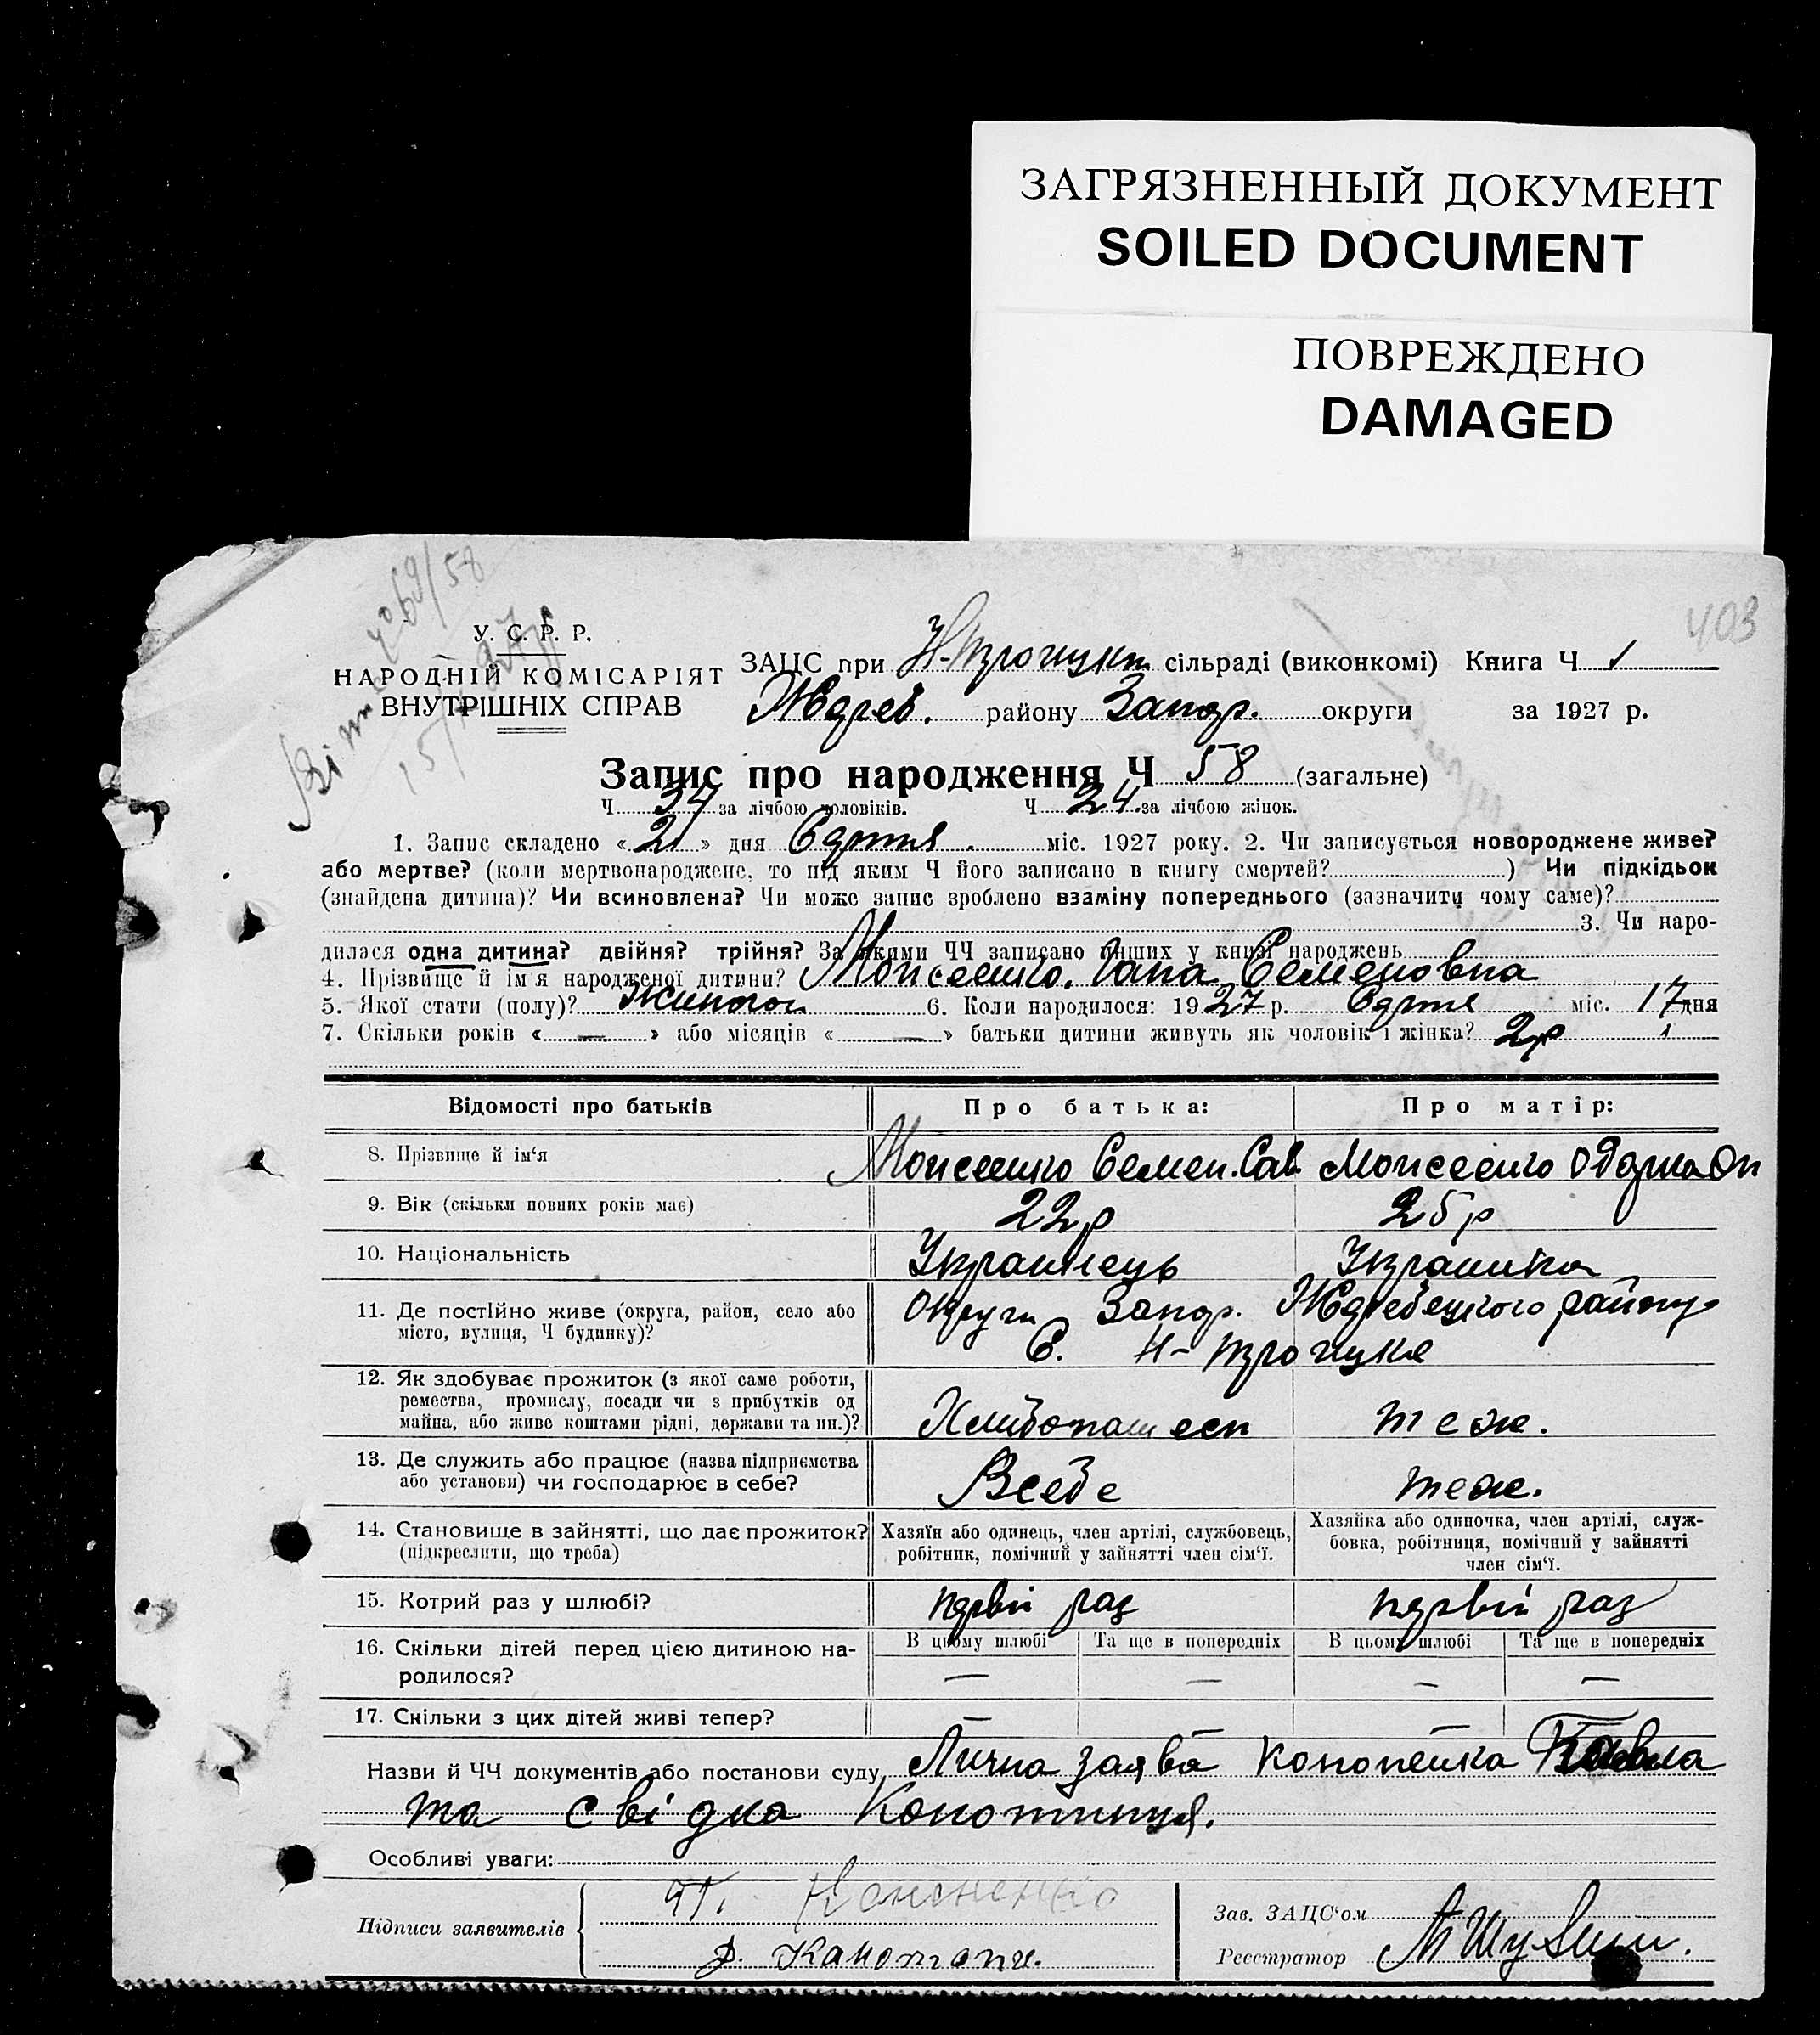 ЗАГРЯЗНЕННЫЙ ДОКУМЕНТ
SOILED DOCUMENT
ПОВРЕЖДЕНО
DAMAGED
403
У. С. Р. Р.
НАРОДНІЙ КОМІСАРІЯТ
ВНУТРІШНІХ СПРАВ
ЗАЦС при Н-Троицкт сільраді (виконкомі) Книга Ч 1
Жереб. району Запор. округи за 1927 р.
Запис про народження Ч 58 (загальне)
Ч 34 за лічбою чоловіків. Ч 24 за лічбою жінок.
1. Запис складено «21» дня Серпня міс. 1927 року. 2. Чи записується новороджене живе?
або мертве? (коли мертвонароджене, то під яким Ч його записано в книгу смертей? ) Чи підкідьок
(знайдена дитина)? Чи всиновлена? Чи може запис зроблено взаміну попереднього (зазначити чому саме)?
3. Чи наро-
дилася одна дитина? двійня? трійня? За якими ЧЧ записано инших у книзі народжень
4. Прізвище й ім'я народженої дитини? Моисеенко Семеновна
5. Якої стати (полу)? Жиночої 6. Коли народилося: 1927 р. Серпня міс. 17 дня
7. Скільки років « — » або місяців « — » батьки дитини живуть як чоловік і жінка? 2р
Відомості про батьків
Про батька:
Про матір:
8. Прізвище й ім'я Моисеенко Семен Сав Моисеенко Одарка
9. Вік (скільки повних років має) 22р 25р
10. Національність Украинець Украинка
11. Де постійно живе (округа, район, село або Округи Запор. Жеребецкого району
місто, вулиця, Ч будинку)? С. Н-Троицке
12. Як здобуває прожиток (з якої саме роботи,
ремества, промислу, посади чи з прибутків од
майна, або живе коштами рідні, держави та ин.)? Хлибопашесп теж.
13. Де служить або працює (назва підприємства
або установи) чи господарює в себе? Всебе теж.
14. Становище в зайнятті, що дає прожиток?
(підкреслити, що треба)
Хазяїн або одинець, член артілі, службовець,
робітник, помічний у зайнятті член сім'ї.
Хазяйка або одиночка, член артілі, служ-
бовка, робітниця, помічний у зайнятті
член сім'ї.
15. Котрий раз у шлюбі? первій раз первій раз
16. Скільки дітей перед цією дитиною на-
родилося?
В цьому шлюбі Та ще в попередніх В цьому шлюбі Та ще в попередніх
— — — —
17. Скільки з цих дітей живі тепер? — — — —
Назви й ЧЧ документів або постанови суду Лична заява Павла
та свідка Конотопця.
Особливі уваги:
Підписи заявителів
Зав. ЗАЦС'ом
Реєстратор